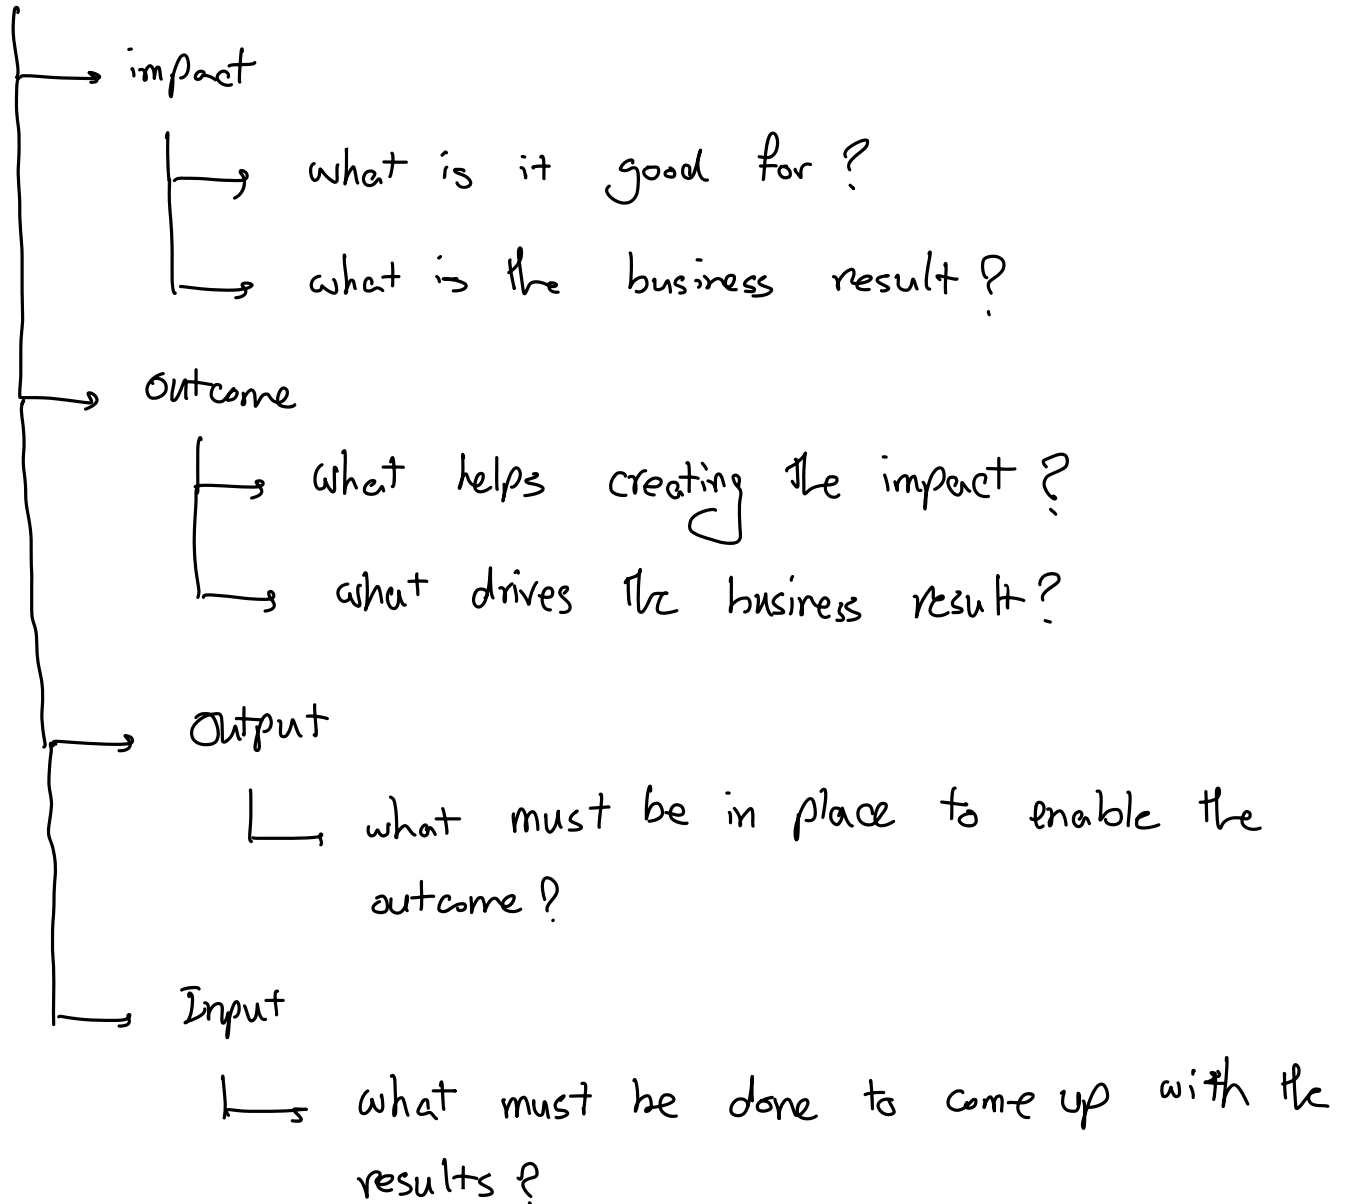 impact
what is it good for ?
what is the business result ?
outcome
what helps creating the impact ?
what drives the business result ?
Output
what must be in place to enable the
outcome ?
Input
what must be done to come up with the
results ?